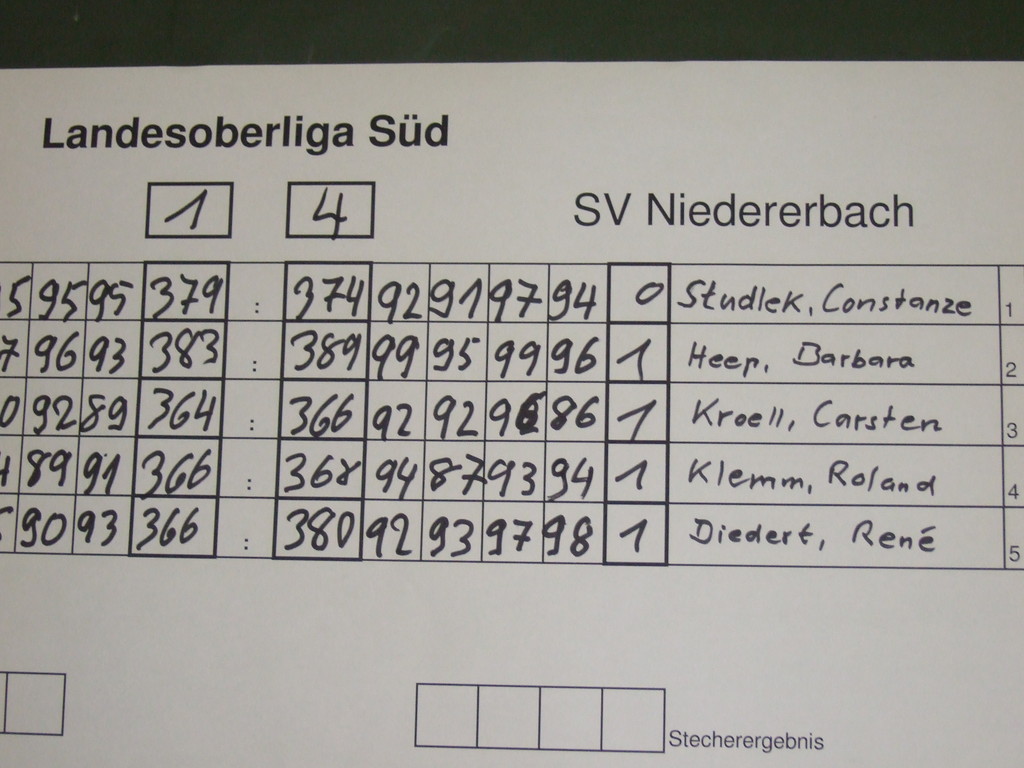 Landesoberliga Süd
1 4 SV Niedererbach
5 95 95 379 : 374 92 91 97 94 0 Studlek, Constanze 1
7 96 93 383 : 389 99 95 99 96 1 Heep, Barbara 2
0 92 89 364 : 366 92 92 96 86 1 Kroell, Carsten 3
4 89 91 366 : 368 94 87 93 94 1 Klemm, Roland 4
5 90 93 366 : 380 92 93 97 98 1 Diedert, René 5
Stecherergebnis